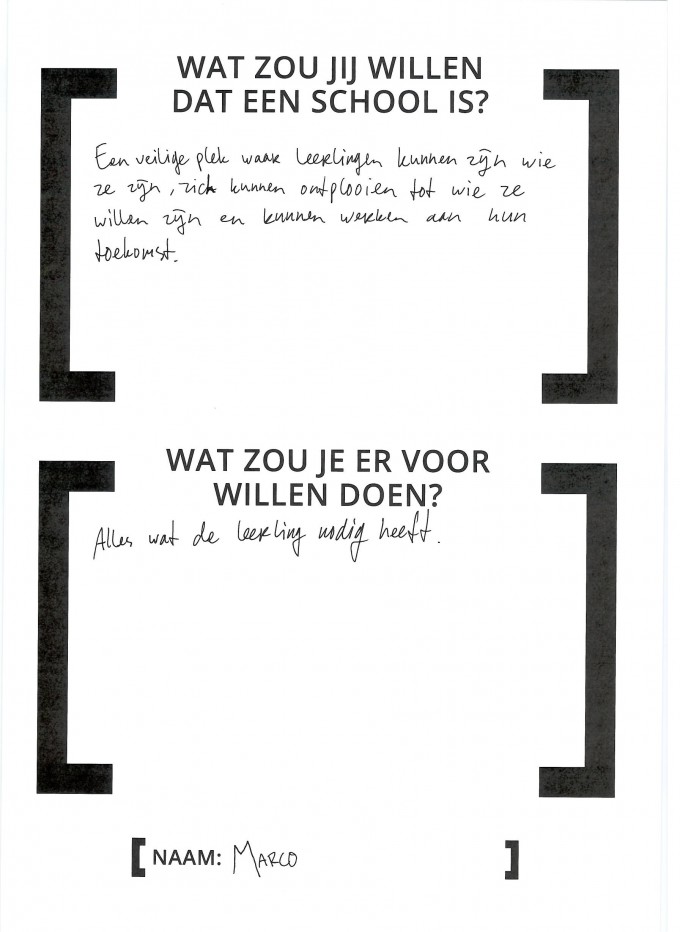 WAT ZOU JIJ WILLEN
DAT EEN SCHOOL IS?
Een veilige plek waar leerlingen kunnen zijn wie
ze zijn, zich kunnen ontplooien tot wie ze
willen zijn en kunnen werken aan hun
toekomst.
WAT ZOU JE ER VOOR
WILLEN DOEN?
Alles wat de leerling nodig heeft.
NAAM: MARCO